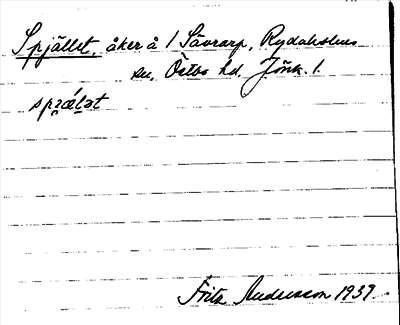 Spjället, åker å 1 Sävrarp, Rydaholms
sn, Östbo hd. Jönk. l.
spræ̀lət
Frits Andersson 1937.